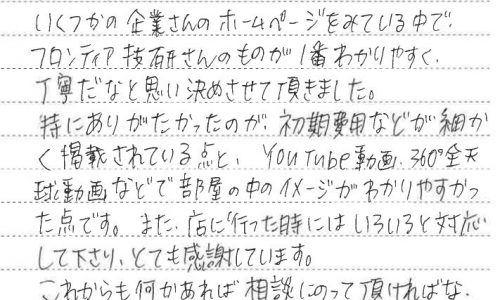 いくつかの企業さんのホームページをみている中で、
フロンティア技研さんのものが1番わかりやすく、
丁寧だなと思い決めさせて頂きました。
特にありがたかったのが、初期費用などが細か
く掲載されている点と、YouTube動画、360°全天
球動画などで部屋の中のイメージがわかりやすかっ
た点です。また、店に行った時にはいろいろと対応
して下さり、とても感謝しています。
これからも何かあれば相談にのって頂ければな、